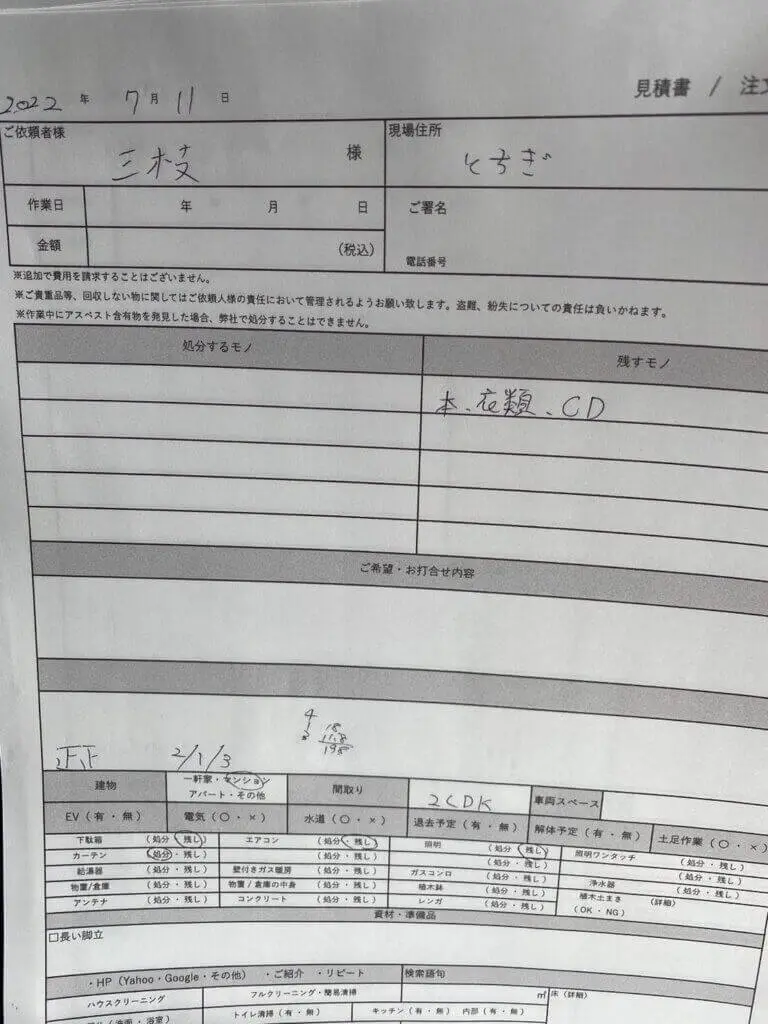 見積書 / 注文
2022 年 7 月 11 日
ご依頼者様 三枝 様
現場住所 とちぎ
作業日 年 月 日
ご署名
金額 (税込)
電話番号
※追加で費用を請求することはございません。
※ご貴重品等、回収しない物に関してはご依頼人様の責任において管理されるようお願い致します。盗難、紛失についての責任は負いかねます。
※作業中にアスベスト含有物を発見した場合、弊社で処分することはできません。
処分するモノ 残すモノ
本、衣類、CD
ご希望・お打合せ内容
正正 2/1/3
建物 一軒家・マンション 間取り 2LDK 車両スペース
アパート・その他
EV (有・無) 電気 (〇・×) 水道 (〇・×) 退去予定 (有・無) 解体予定 (有・無) 土足作業 (〇・×)
下駄箱 (処分・残し) エアコン (処分・残し) 照明 (処分・残し) 照明ワンタッチ (処分・残し)
カーテン (処分・残し) (処分・残し) (処分・残し) (処分・残し)
給湯器 (処分・残し) 壁付きガス暖房 (処分・残し) ガスコンロ (処分・残し) 浄水器 (処分・残し)
物置/倉庫 (処分・残し) 物置/倉庫の中身 (処分・残し) 植木鉢 (処分・残し) 植木土まき (詳細)
アンテナ (処分・残し) コンクリート (処分・残し) レンガ (処分・残し) (OK・NG)
資材・準備品
□長い脚立
・HP (Yahoo・Google・その他) ・ご紹介 ・リピート 検索語句
ハウスクリーニング フルクリーニング・簡易清掃 ㎡ 床 (詳細)
トイレ清掃 (有・無) キッチン (有・無) 内部 (有・無)